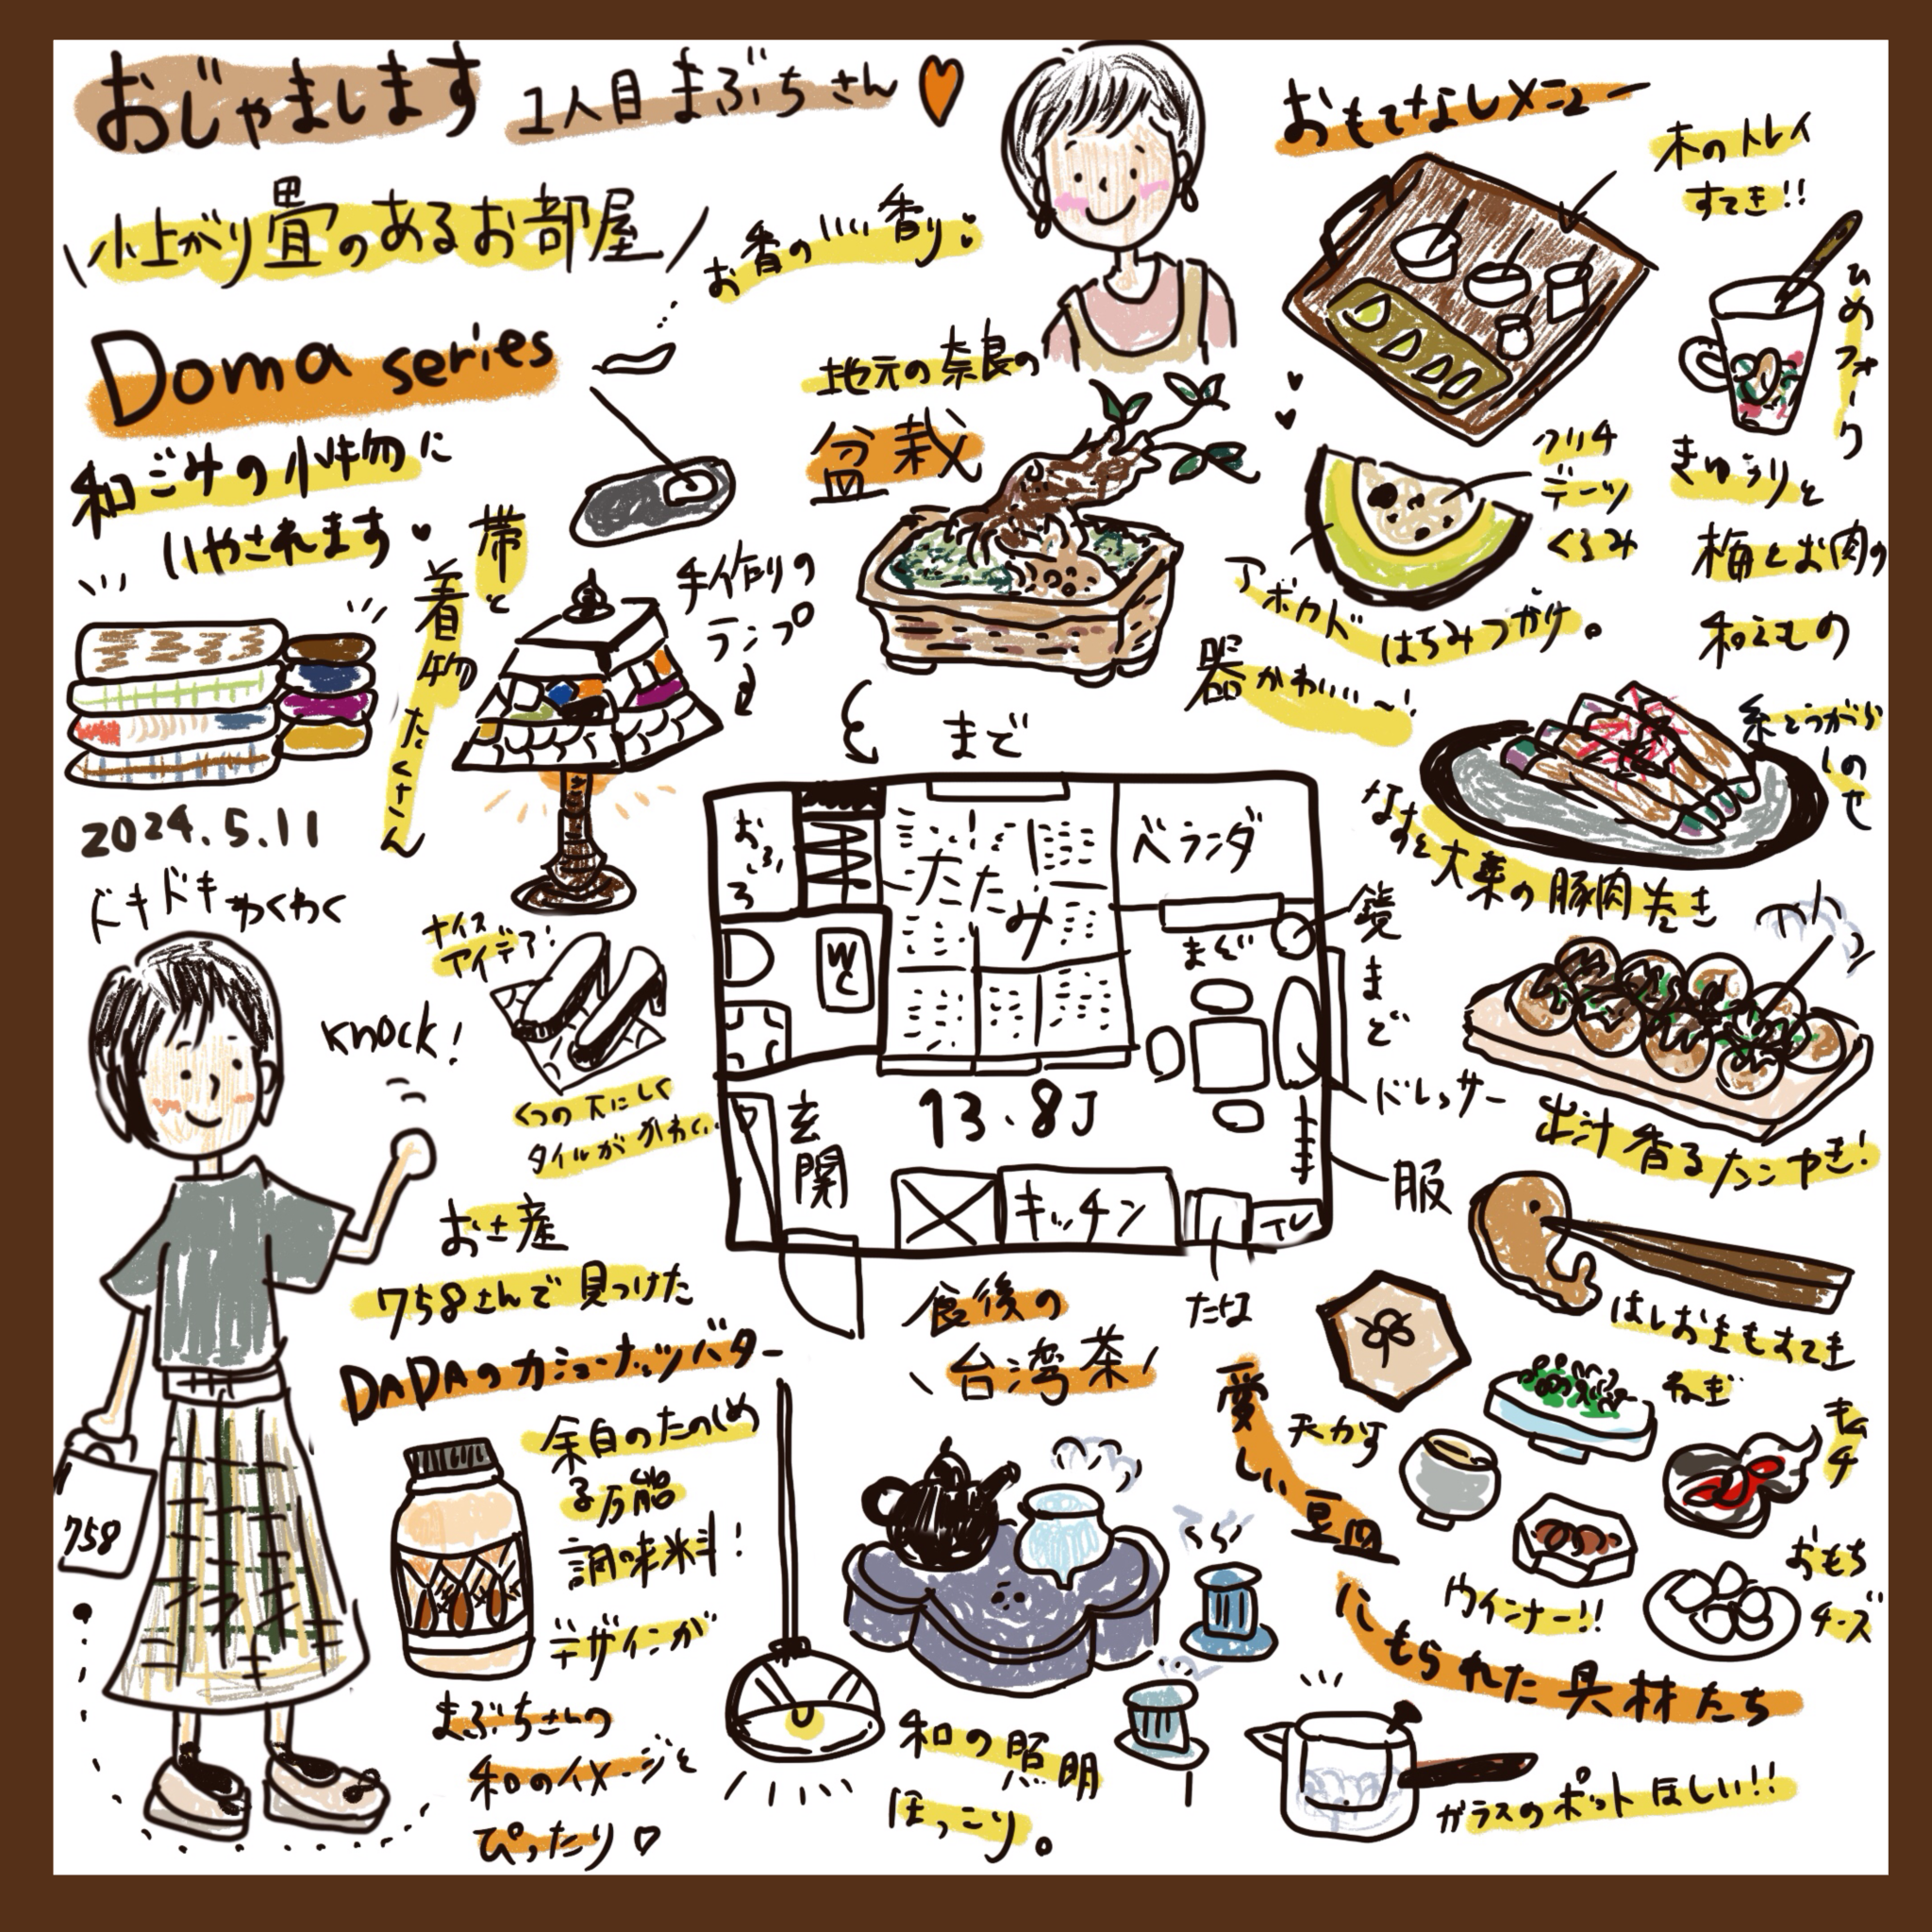 おじゃまします 1人目 まぶちさん
小上がり畳のあるお部屋
お香のいい香り
Doma series
和ごみの小物に
いやされます
帯と
着物たくさん
手作りの
ランプ
地元の奈良の
盆栽
2024.5.11
ドキドキわくわく
knock!
ナイス
アイデア!
くつの下にしく
タイルがかわいい
おもてなしメニュー
木のトレイ
すてき!!
ひめフォーク
クリチ
デーツ
くるみ
アボカド はちみつがけ。
きゅうりと
梅とお肉の
和えもの
器かわいい〜!
糸とうがらしのせ
なすと大葉の豚肉巻き
出汁香るタコヤき!
はしおきもすてき
まど
おふろ
たたみ
ベランダ
WC
まど
鏡
まど
ドレッサー
玄関
13.8J
キッチン
TV
服
たな
お土産
758さんで見つけた
DADAのカシューナッツバター
余白のたのしめ
る万能
調味料!
デザインが
まぶちさんの
和のイメージと
ぴったり
758
食後の
台湾茶
和の照明
ほっこり。
愛しい豆皿
にもられた具材たち
天かす
ねぎ
キムチ
ウインナー!!
おもち
チーズ
ガラスのポットほしい!!